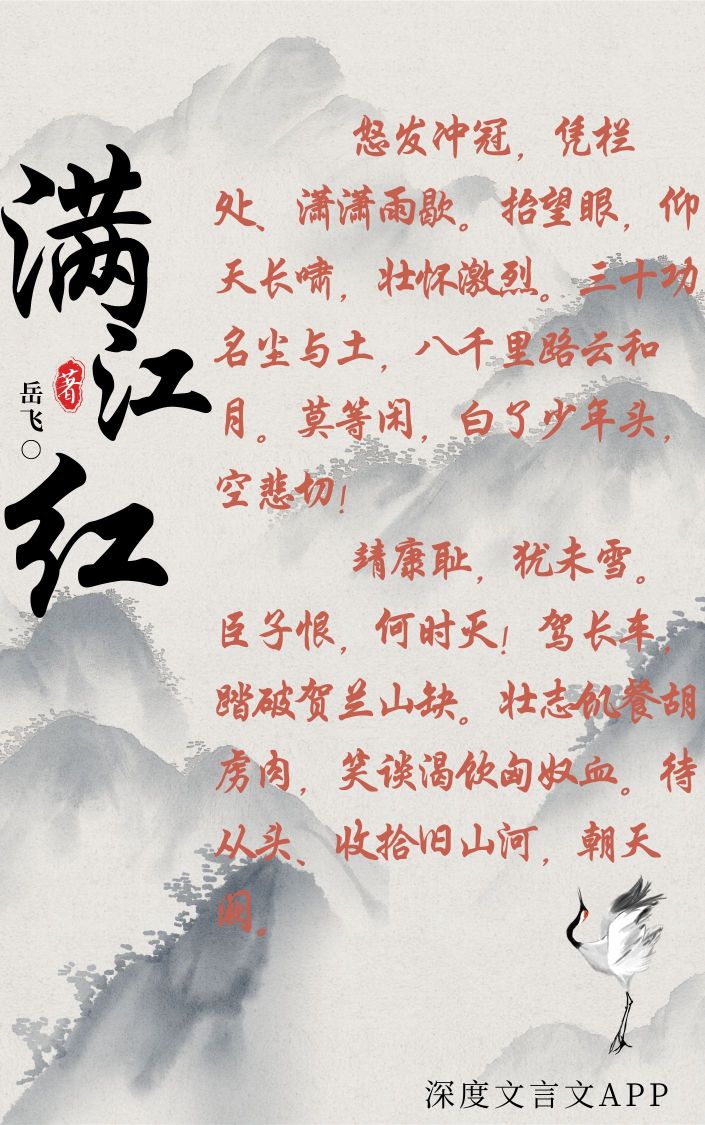 满江红
岳飞〇
著
怒发冲冠，凭栏
处、潇潇雨歇。抬望眼，仰
天长啸，壮怀激烈。三十功
名尘与土，八千里路云和
月。莫等闲，白了少年头，
空悲切！
靖康耻，犹未雪。
臣子恨，何时灭！驾长车，
踏破贺兰山缺。壮志饥餐胡
虏肉，笑谈渴饮匈奴血。待
从头、收拾旧山河，朝天
阙。
深度文言文APP